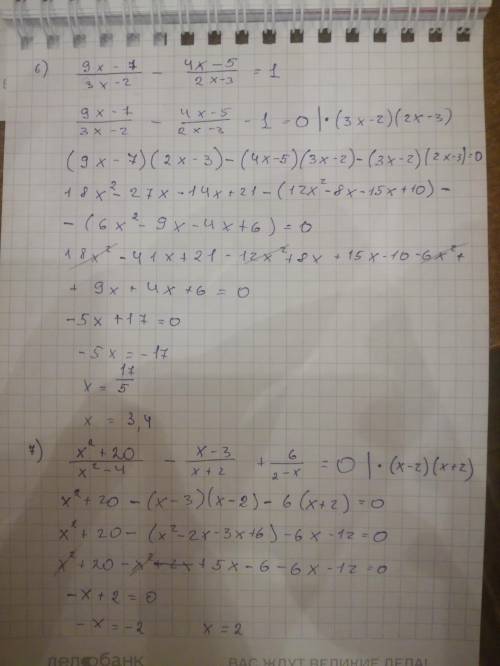 6) (9x-7)/(3x-2) - (4x-5)/(2x-3) = 1
(9x-7)/(3x-2) - (4x-5)/(2x-3) - 1 = 0 | · (3x-2)(2x-3)
(9x-7)(2x-3)-(4x-5)(3x-2)-(3x-2)(2x-3)=0
18x²-27x-14x+21-(12x²-8x-15x+10)-
-(6x²-9x-4x+6)=0
18x²-41x+21-12x²+8x+15x-10-6x²+
+9x+4x+6=0
-5x+17=0
-5x=-17
x=17/5
x = 3,4
7) (x²+20)/(x²-4) - (x-3)/(x+2) + 6/(2-x) = 0 | · (x-2)(x+2)
x²+20-(x-3)(x-2)-6(x+2)=0
x²+20-(x²-2x-3x+6)-6x-12=0
x²+20-x²+5x-6-6x-12=0
-x+2=0
-x=-2 x=2
делобанк ВАС ЖДУТ ВЕЛИКИЕ ДЕЛА!